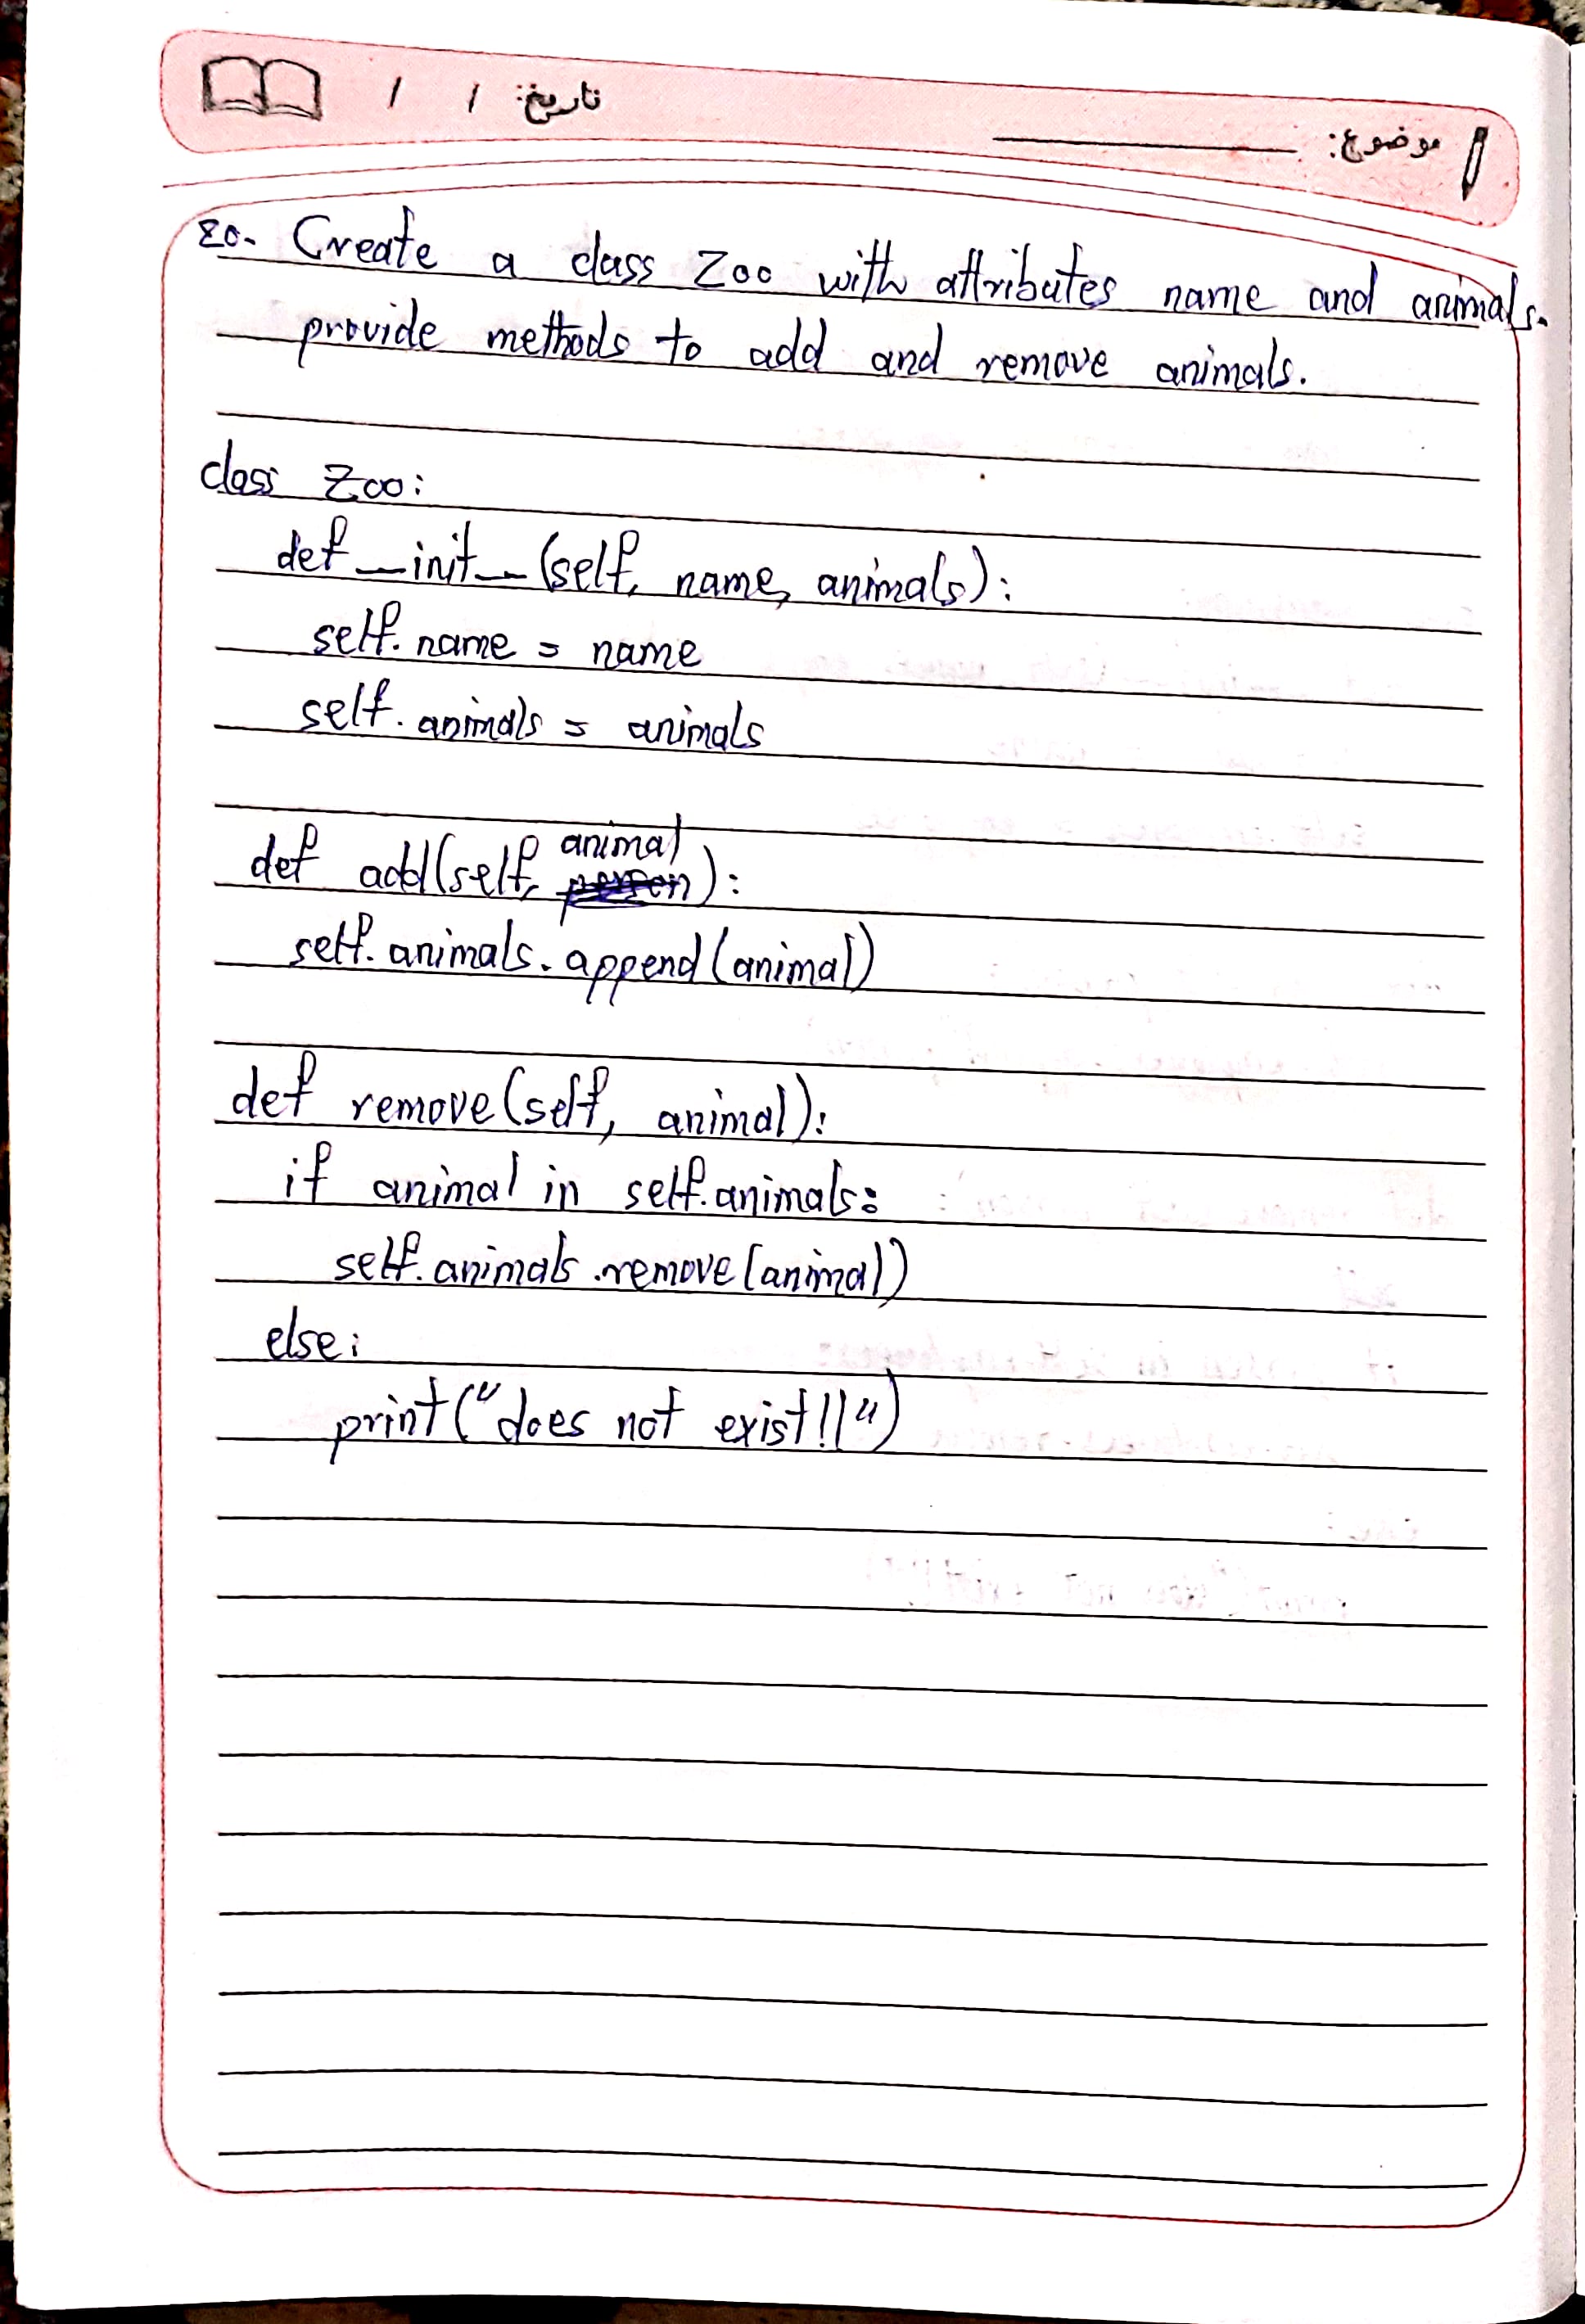 تاریخ: / /
موضوع:
20. Create a class Zoo with attributes name and animals.
provide methods to add and remove animals.
class Zoo:
def __init__(self, name, animals):
self.name = name
self.animals = animals
def add(self, animal):
self.animals.append(animal)
def remove(self, animal):
if animal in self.animals:
self.animals.remove(animal)
else:
print("does not exist!!")